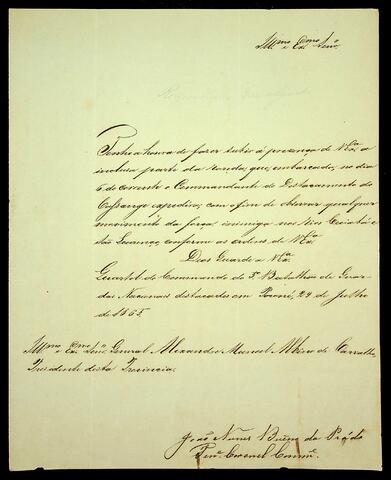 Illmo e Exmo Senr.
Tenho a honra de fazer subir á presença de V.Exa a
inclusa parte da ronda, que, embarcado, no dia
6 do corrente o Commandante do Destacamento do
expedio, com o fim de observar qualquer
movimento da força inimiga nos Rios Cuiabá e
São Lourenço, conforme as ordens de V.Exa
Deos Guarde a V.Exa
Quartel do Commando do 5º Batalhão de Guar-
das Nacionaes destacado em Poconé, 29 de Julho
de 1865
Illmo e Exmo Senr. General Alexandre Manoel Albino de Carvalho
Presidente desta Provincia.
João Nunes Bueno do Prado
Tene. Coronel Comme.